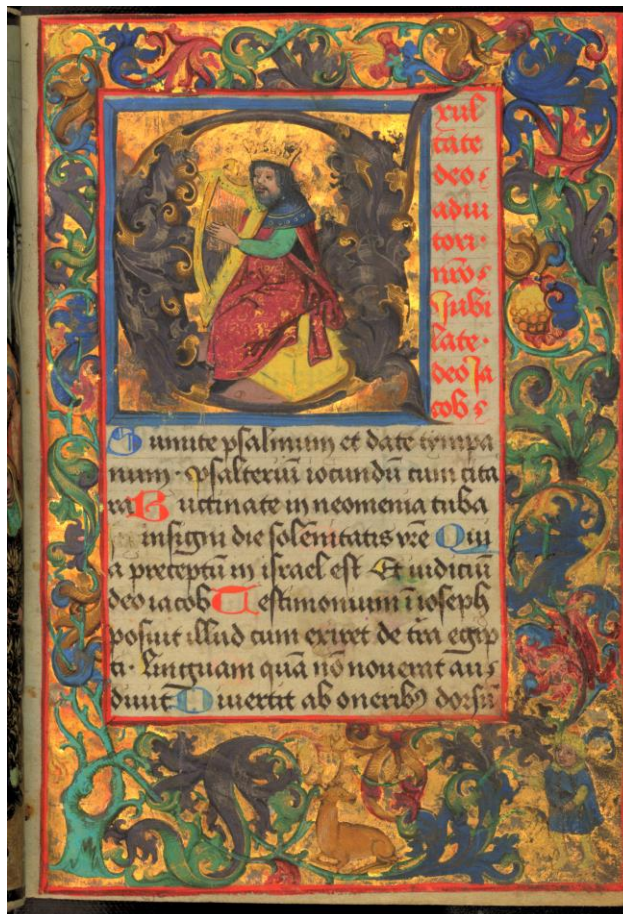 Exul
tate
deo
adiu
tori·
nr̄o
Jubi
late·
deo Ja
cob
Sumite psalmum et date tympa
num· psalteriū iocundū cum cita
ra Buccinate in neomenia tuba
insigni die solēnitatis vr̄e Qui
a preceptū in israel est Et iudiciū
deo iacob Testimonium ī ioseph
posuit illud cum exiret de tr̄a egip
ti· Linguam quā nō nouerat au
diuit Diuertit ab oneribꝰ dorsū